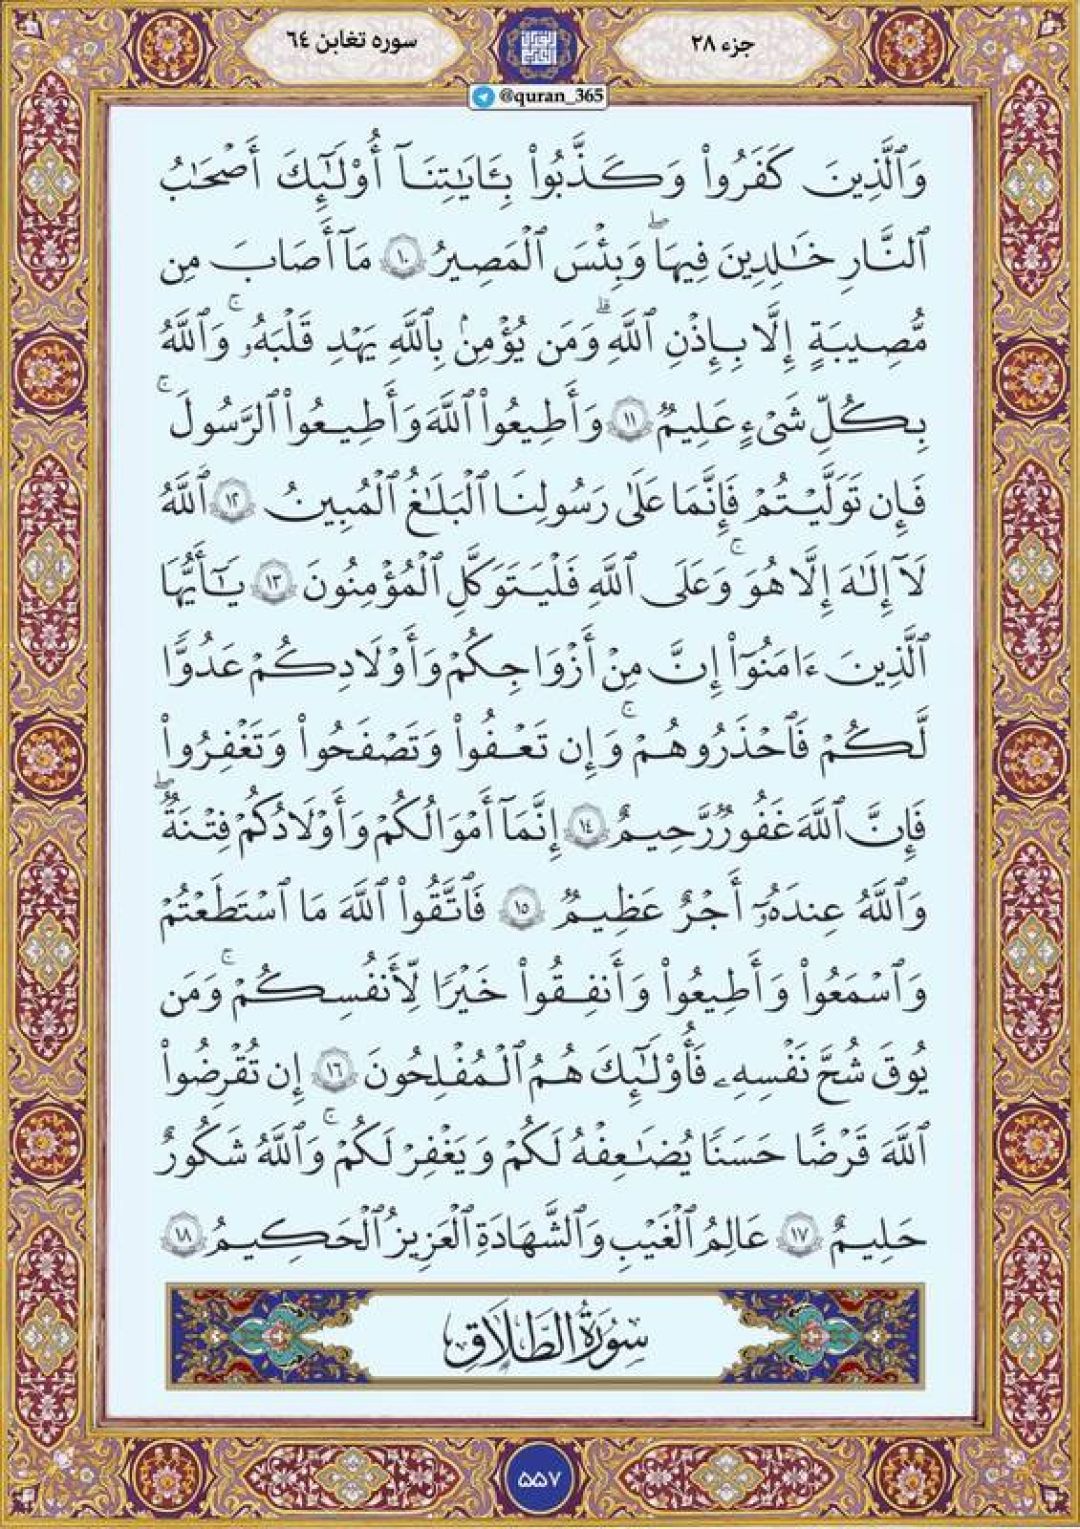 جزء ۲۸
سوره تغابن ٦٤
@quran_365
وَٱلَّذِينَ كَفَرُوا۟ وَكَذَّبُوا۟ بِـَٔايَـٰتِنَآ أُو۟لَـٰٓئِكَ أَصْحَـٰبُ
ٱلنَّارِ خَـٰلِدِينَ فِيهَا ۖ وَبِئْسَ ٱلْمَصِيرُ ١٠ مَآ أَصَابَ مِن
مُّصِيبَةٍ إِلَّا بِإِذْنِ ٱللَّهِ ۗ وَمَن يُؤْمِنۢ بِٱللَّهِ يَهْدِ قَلْبَهُۥ ۚ وَٱللَّهُ
بِكُلِّ شَىْءٍ عَلِيمٌ ١١ وَأَطِيعُوا۟ ٱللَّهَ وَأَطِيعُوا۟ ٱلرَّسُولَ ۚ
فَإِن تَوَلَّيْتُمْ فَإِنَّمَا عَلَىٰ رَسُولِنَا ٱلْبَلَـٰغُ ٱلْمُبِينُ ١٢ ٱللَّهُ
لَآ إِلَـٰهَ إِلَّا هُوَ ۚ وَعَلَى ٱللَّهِ فَلْيَتَوَكَّلِ ٱلْمُؤْمِنُونَ ١٣ يَـٰٓأَيُّهَا
ٱلَّذِينَ ءَامَنُوٓا۟ إِنَّ مِنْ أَزْوَٰجِكُمْ وَأَوْلَـٰدِكُمْ عَدُوًّا
لَّكُمْ فَٱحْذَرُوهُمْ ۚ وَإِن تَعْفُوا۟ وَتَصْفَحُوا۟ وَتَغْفِرُوا۟
فَإِنَّ ٱللَّهَ غَفُورٌ رَّحِيمٌ ١٤ إِنَّمَآ أَمْوَٰلُكُمْ وَأَوْلَـٰدُكُمْ فِتْنَةٌ ۖ
وَٱللَّهُ عِندَهُۥٓ أَجْرٌ عَظِيمٌ ١٥ فَٱتَّقُوا۟ ٱللَّهَ مَا ٱسْتَطَعْتُمْ
وَٱسْمَعُوا۟ وَأَطِيعُوا۟ وَأَنفِقُوا۟ خَيْرًا لِّأَنفُسِكُمْ ۗ وَمَن
يُوقَ شُحَّ نَفْسِهِۦ فَأُو۟لَـٰٓئِكَ هُمُ ٱلْمُفْلِحُونَ ١٦ إِن تُقْرِضُوا۟
ٱللَّهَ قَرْضًا حَسَنًا يُضَـٰعِفْهُ لَكُمْ وَيَغْفِرْ لَكُمْ ۚ وَٱللَّهُ شَكُورٌ
حَلِيمٌ ١٧ عَـٰلِمُ ٱلْغَيْبِ وَٱلشَّهَـٰدَةِ ٱلْعَزِيزُ ٱلْحَكِيمُ ١٨
سُورَةُ ٱلطَّلَاقِ
۵۵۷